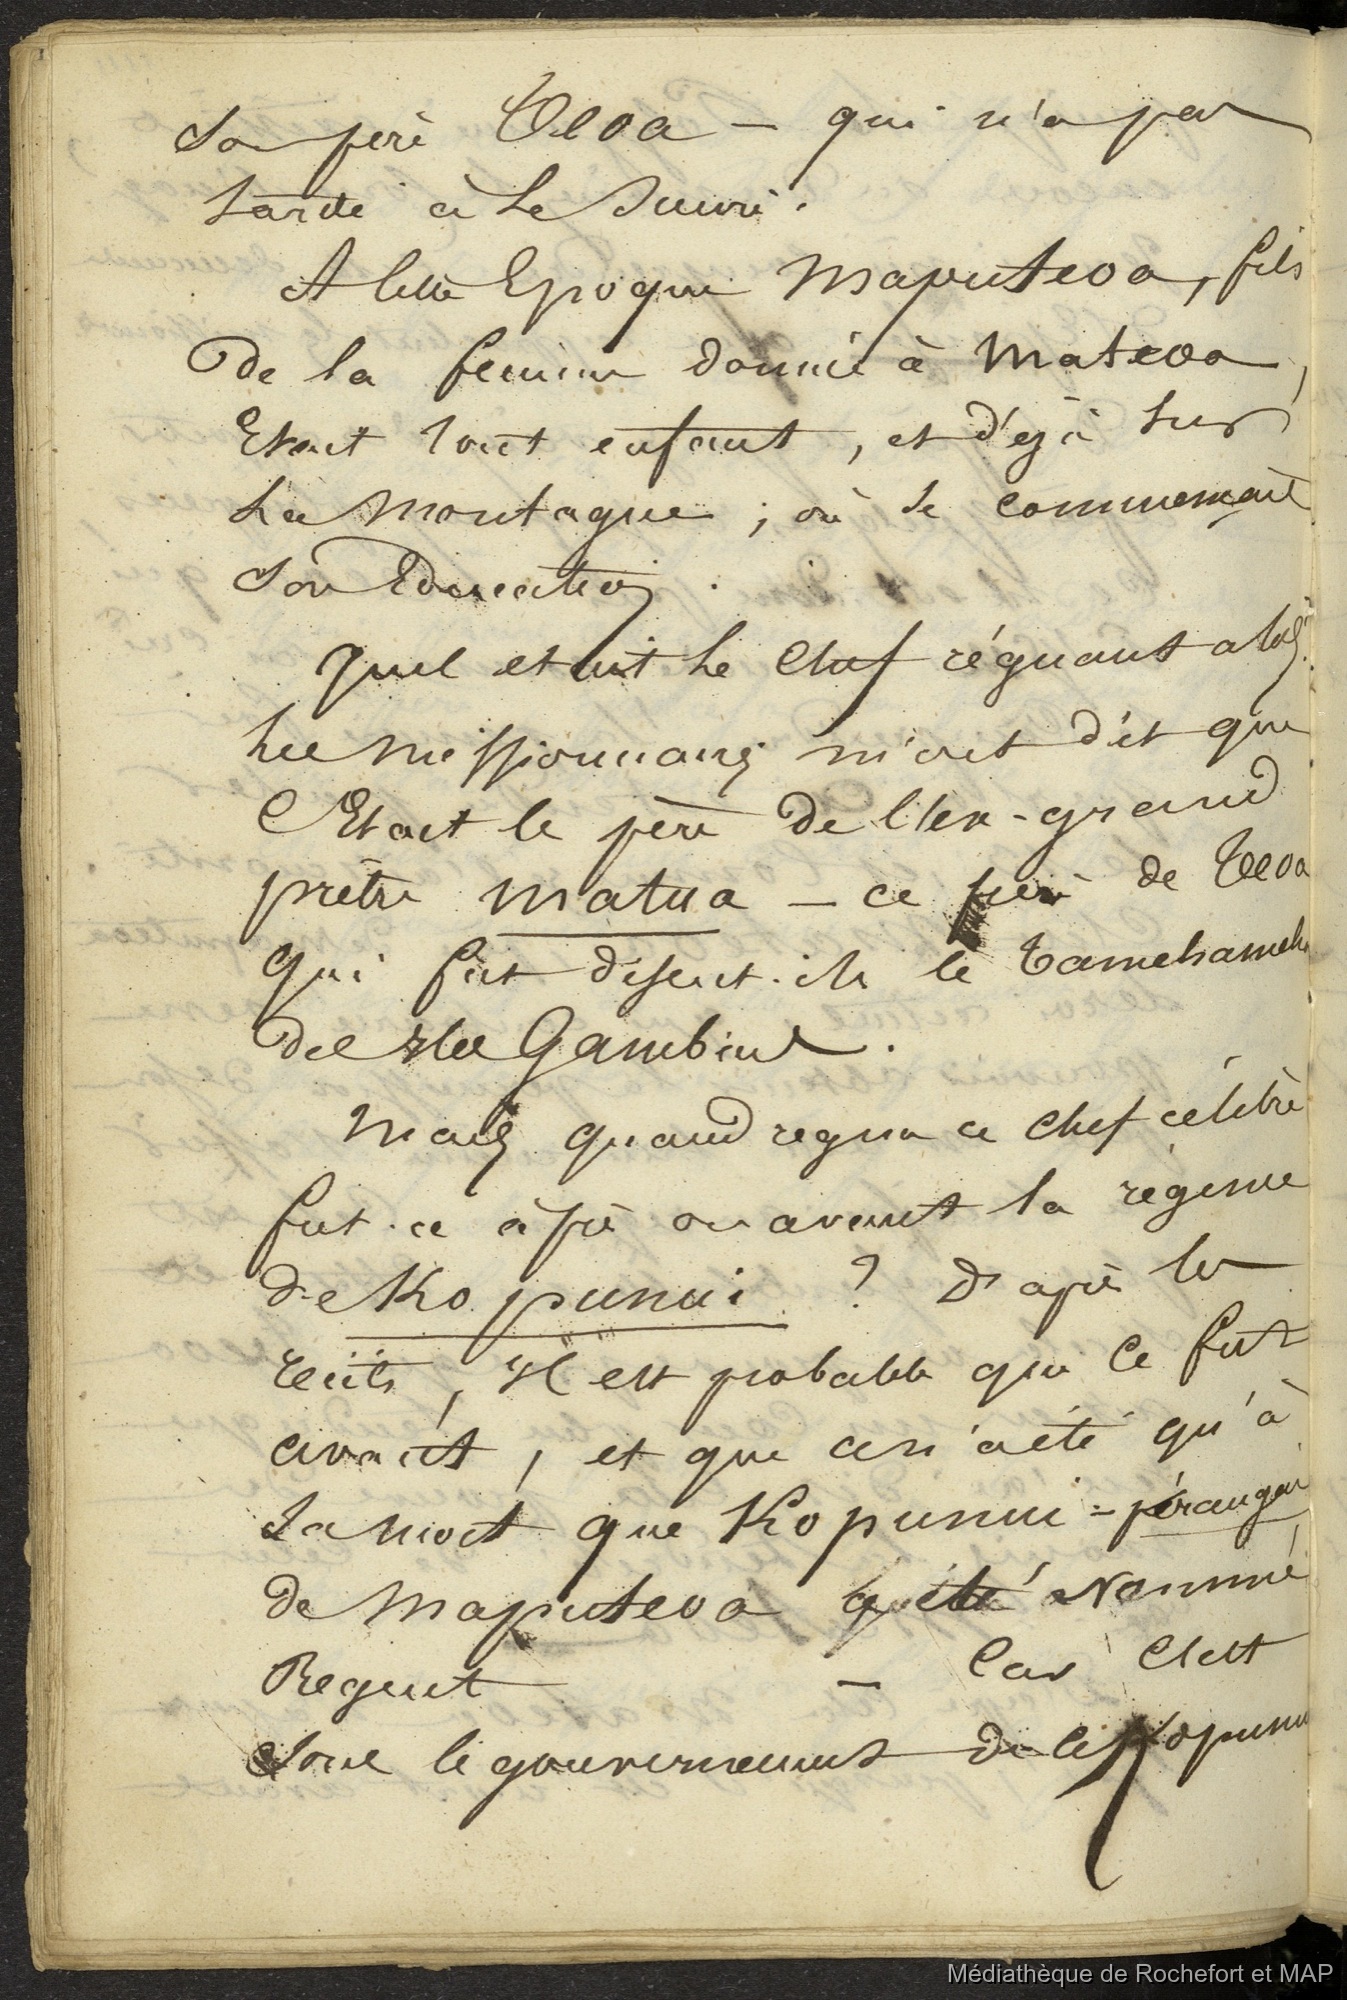 son père Teoa – qui n'a pas
tardé à le suivre.
A cette Epoque Maputeoa, fils
de la femme donnée à Mateoa,
Etait tout enfant, et déjà sur
la montagne ; où se commençait
son Education.
quel etait le chef régnant alors?
les missionnaires m'ont dit que
C'Etait le père de l'ex-grand
prêtre Matua – ce père de Teoa
qui fut disent-ils le Tamehameha
des Iles Gambier.
Mais quand regna ce chef célèbre
fut-ce après ou avant la régence
de Kopunui ? D'après les
récits, Il est probable que ce fut
avant, et que ce n'a été qu'à
sa mort que Kopunui -
de Maputeoa a été Nommé
Regent – Car C'est
sous le gouvernement de ce Kopunui
Médiathèque de Rochefort et MAP